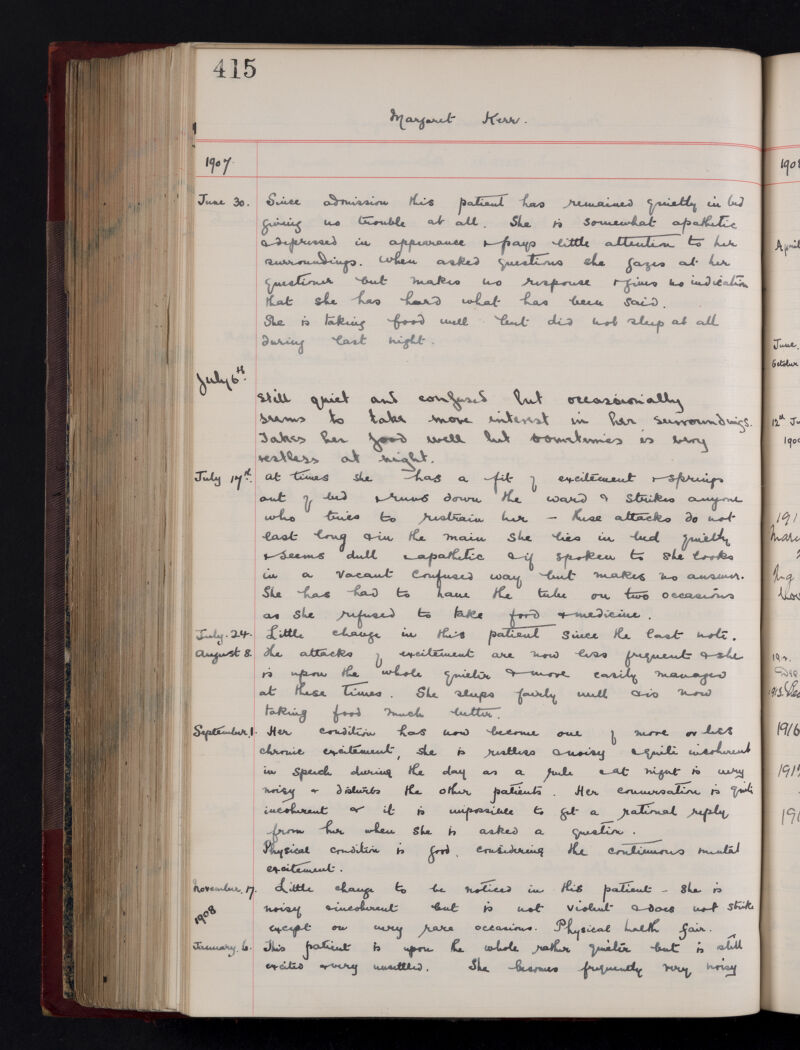 415
Margaret Kerr.
1907
June 30. Since admission this patient has remained quietly in bed
giving no trouble at all. She is somewhat apathetic
& depressed in appearance & pays little attention to her
surroundings. When asked questions she gazes at her
questioner but makes no response & gives no indication
that she has heard what has been said.
She is taking food well but did not sleep at all
during last night.
July 6th.
Still quiet and confused but occassionally
seems to take more interest in her surroundings.
Takes her food well but sometimes is very
restless at night.
July 17th. At times she has a fit of excitement & springs
out of bed & runs down the ward & strikes anyone
who tries to restrain her – these attacks do not
last long & in the main she lies in bed quietly
& seems dull & apathetic & if spoken to she looks
in a vacant confused way but makes no answer.
She has had to have the tube on two occasions
as she refused to take food & medicine.
July. 24. Little change in this patient since the last note.
August 8. The attacks of excitement are now less frequent & she
is upon the whole quieter & more easily managed
at these times. She sleeps fairly well & is now
taking food much better.
September. 1. Her condition has now become one of more or less
chronic excitement, she is restless & noisy & quite incoherent
in speech during the day as a rule & at night is very
noisy & disturbs the other patients. Her conversation is quite
incoherent & it is impossible to get a rational reply
from her when she is asked a question.
Physical condition is good, considering the continuous mental
excitement.
November. 17. Little change to be noticed in this patient – she is
noisy & incoherent but is not violent & does not strike
1908
except on very rare occasions. Physical health fair.
January. 6. This patient is upon the whole rather quieter but is still
excited & very unsettled. She becomes frequently very noisy
190
April
June.
October
12th Ju
190
191
Nov
1916
191
191